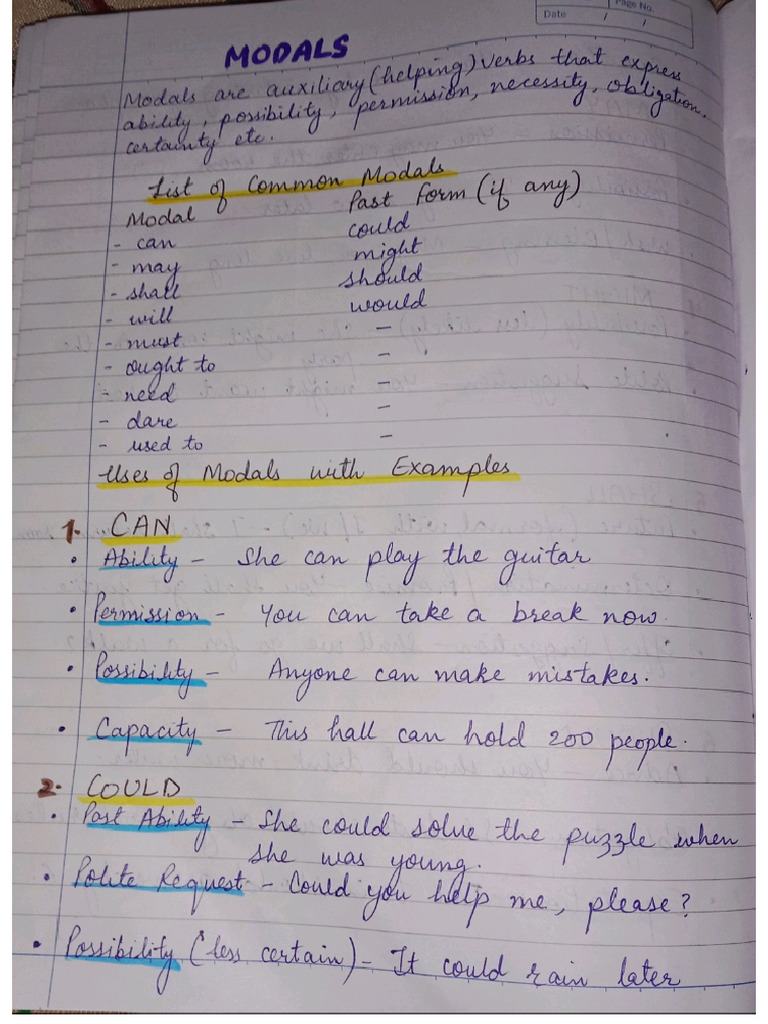 Page No.
Date / /
MODALS
Modals are auxiliary (helping) verbs that express
ability, possibility, permission, necessity, obligation,
certainty etc.
List of Common Modals
Modal Past Form (if any)
- can could
- may might
- shall should
- will would
- must –
- ought to –
- need –
- dare –
- used to –
Uses of Modals with Examples
1. CAN
• Ability – She can play the guitar
• Permission - You can take a break now.
• Possibility – Anyone can make mistakes.
• Capacity – This hall can hold 200 people.
2. COULD
• Past Ability – She could solve the puzzle when
she was young.
• Polite Request – Could you help me, please?
• Possibility (less certain) – It could rain later